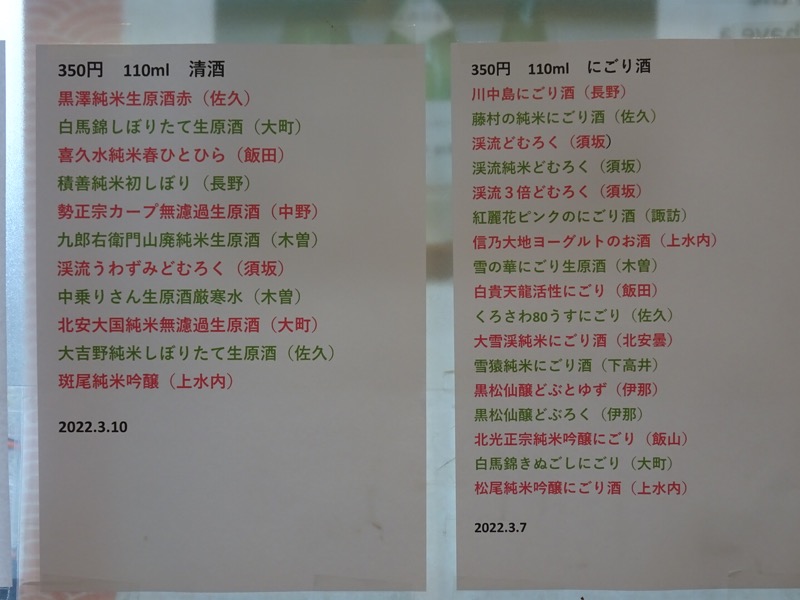 350円 110ml 清酒
黒澤純米生原酒赤（佐久）
白馬錦しぼりたて生原酒（大町）
喜久水純米春ひとひら（飯田）
積善純米初しぼり（長野）
勢正宗カープ無濾過生原酒（中野）
九郎右衛門山廃純米生原酒（木曽）
渓流うわずみどむろく（須坂）
中乗りさん生原酒厳寒水（木曽）
北安大国純米無濾過生原酒（大町）
大吉野純米しぼりたて生原酒（佐久）
斑尾純米吟醸（上水内）
2022.3.10
350円 110ml にごり酒
川中島にごり酒（長野）
藤村の純米にごり酒（佐久）
渓流どむろく（須坂）
渓流純米どむろく（須坂）
渓流３倍どむろく（須坂）
紅麗花ピンクのにごり酒（諏訪）
信乃大地ヨーグルトのお酒（上水内）
雪の華にごり生原酒（木曽）
白貴天龍活性にごり（飯田）
くろさわ80うすにごり（佐久）
大雪渓純米にごり酒（北安曇）
雪猿純米にごり酒（下高井）
黒松仙醸どぶとゆず（伊那）
黒松仙醸どぶろく（伊那）
北光正宗純米吟醸にごり（飯山）
白馬錦きぬごしにごり（大町）
松尾純米吟醸にごり酒（上水内）
2022.3.7